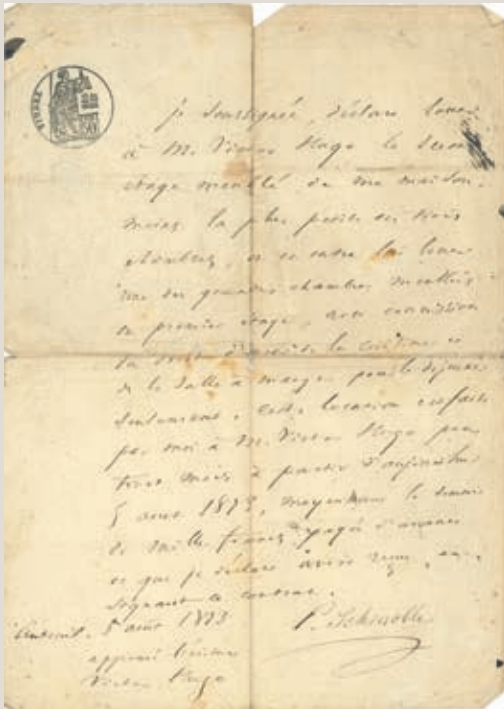 TIMBRE
50
je soussignée, déclare louer
à M. Victor Hugo le second
étage meublé de ma maison,
moins la plus petite des trois
chambres, et en outre lui louer
une des grandes chambres meublées
au premier étage, avec
du droit de la cuisine et
de la salle à manger pour le déjeuner
seulement ; cette location est faite
par moi à M. Victor Hugo pour
trois mois à partir d'aujourd'hui
5 août 1873, moyennant la somme
de mille francs payée d'avance
ce que je déclare avoir reçu, en
signant le contrat.
Auteuil. 5 août 1873
P. Schinoble
approuvé l'écriture
Victor Hugo